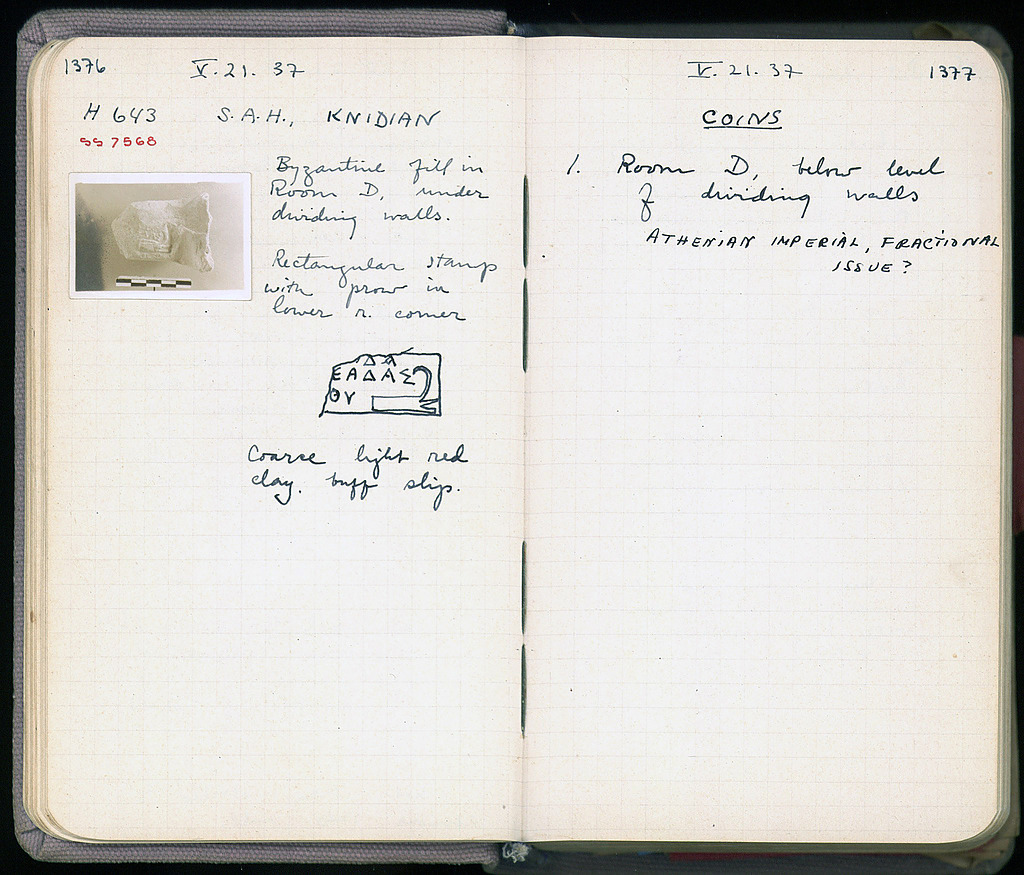 1376
V. 21. 37
H 643 S.A.H., KNIDIAN
SS 7568
Byzantine fill in
Room D, under
dividing walls.
Rectangular stamp
with prow in
lower r. corner
ΔΑ
ΕΑΔΑΣ
ΟΥ
Coarse light red
clay. buff slip.
V. 21. 37
1377
COINS
1. Room D, below level
of dividing walls
ATHENIAN IMPERIAL, FRACTIONAL
ISSUE?